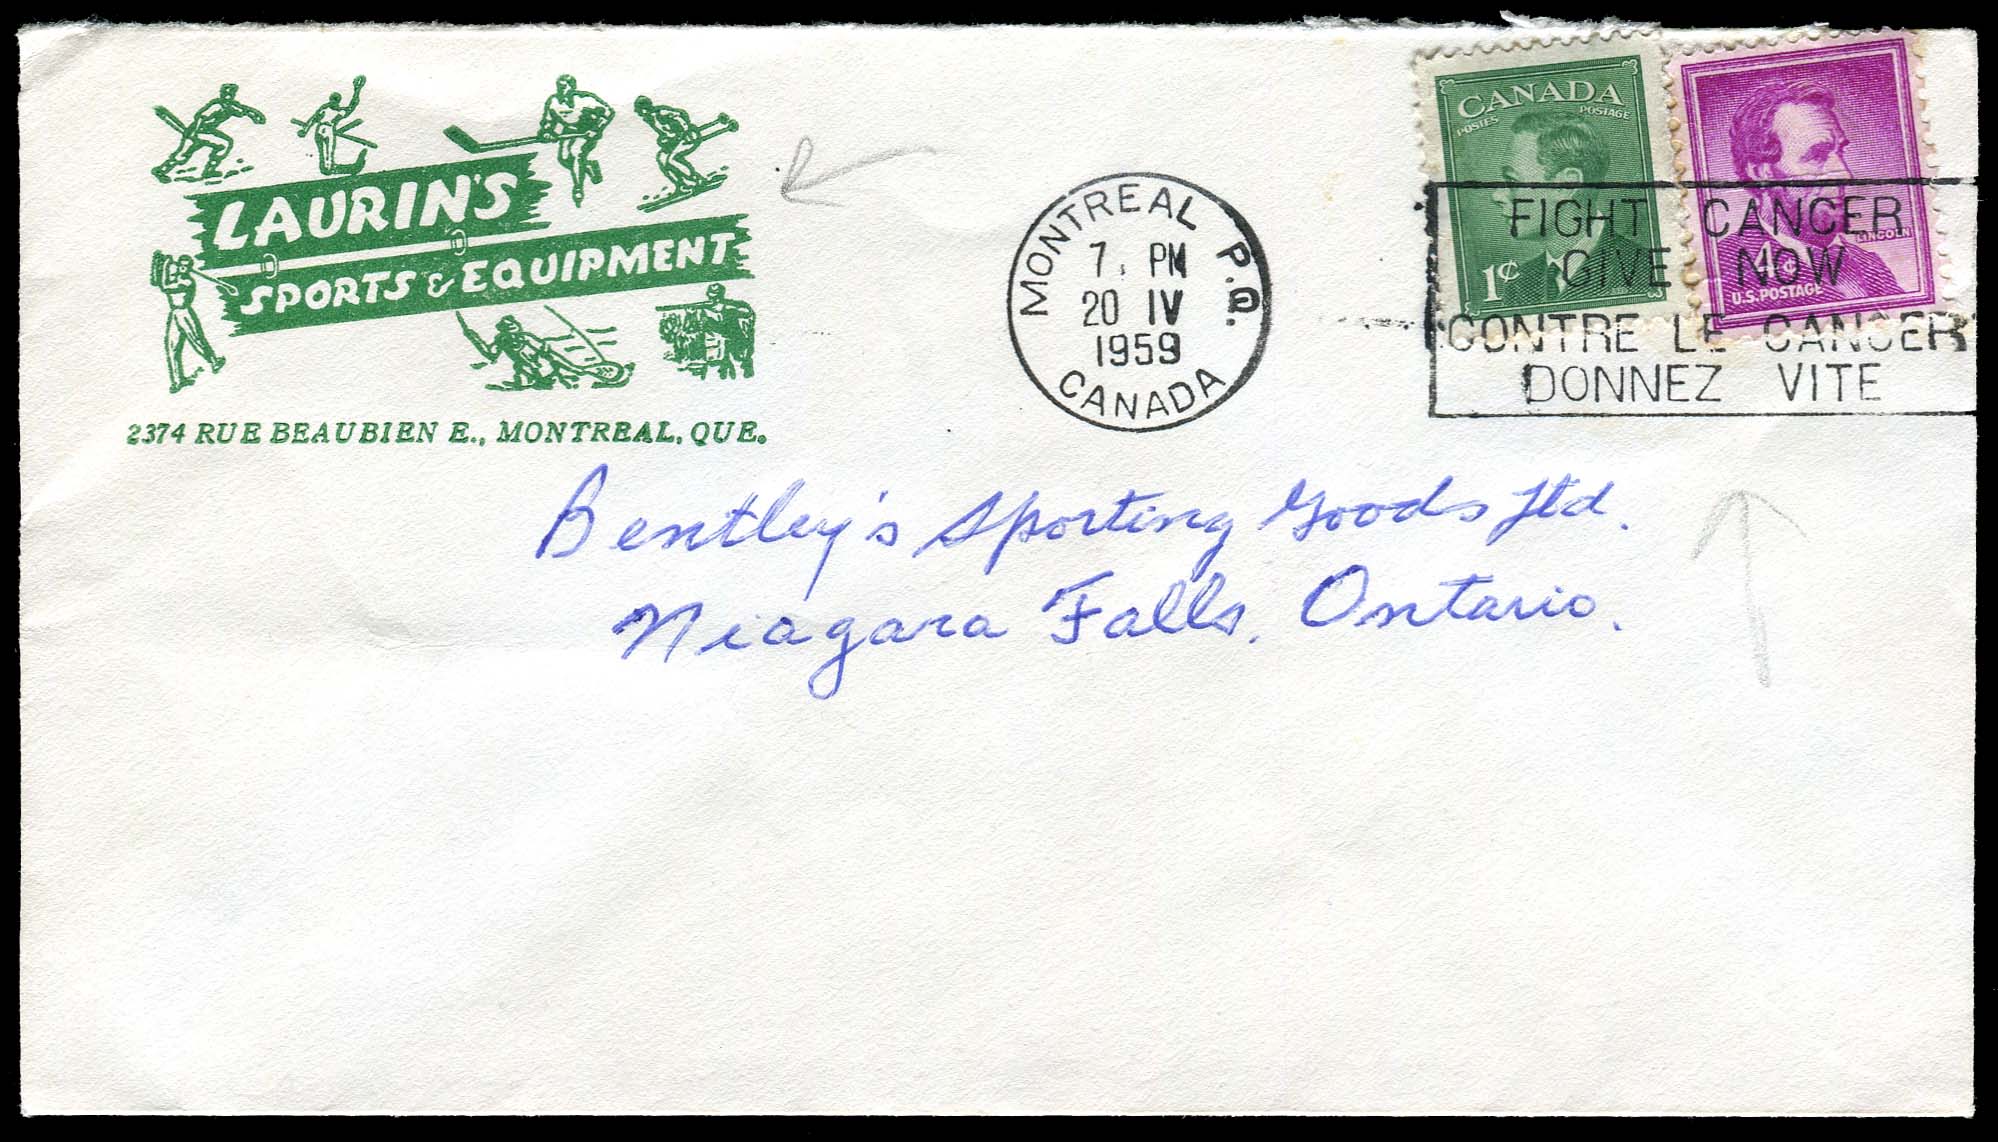 LAURIN'S
SPORTS & EQUIPMENT
2374 RUE BEAUBIEN E., MONTREAL, QUE.
MONTREAL P.Q.
7 PM
20 IV
1959
CANADA
CANADA
POSTES POSTAGE
1¢
LINCOLN
4¢
U.S. POSTAGE
FIGHT CANCER
GIVE NOW
CONTRE LE CANCER
DONNEZ VITE
Bentley's Sporting Goods Ltd.
Niagara Falls, Ontario.